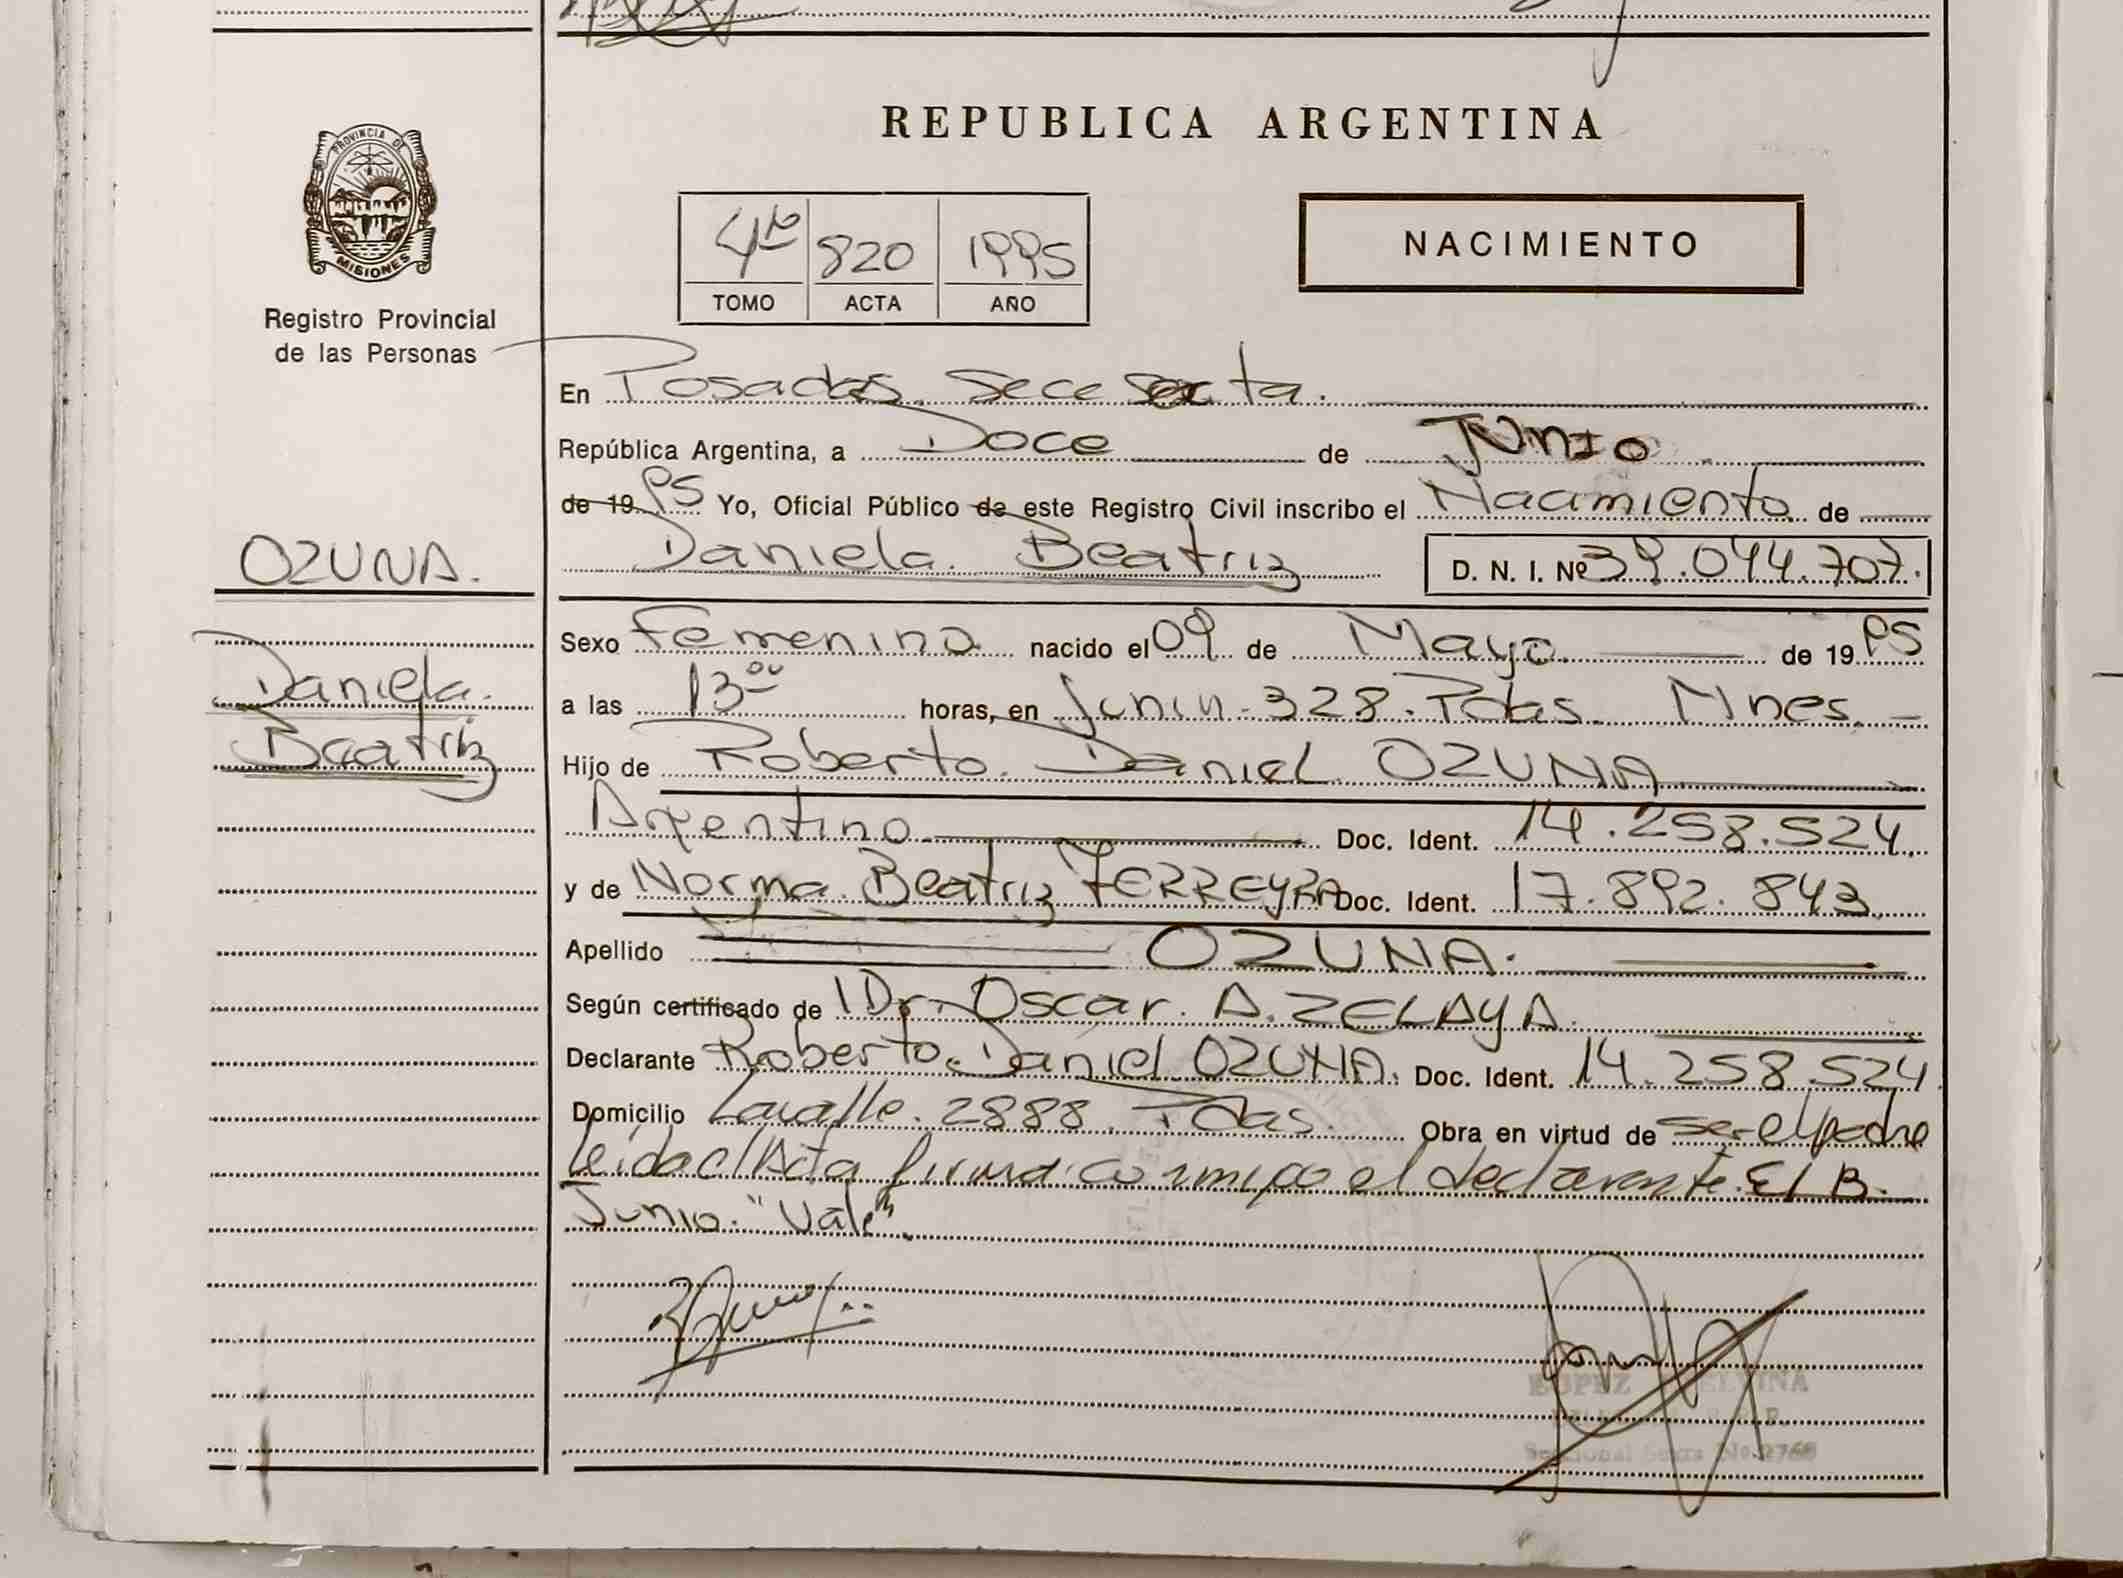 REPUBLICA ARGENTINA
PROVINCIA DE
MISIONES
Registro Provincial
de las Personas
4to 820 1995
TOMO ACTA AÑO
NACIMIENTO
En Posadas. Secc Sexta.
República Argentina, a Doce de Junio
de 19 95 Yo, Oficial Público de este Registro Civil inscribo el Nacimiento de
Daniela. Beatriz D. N. I. Nº 39.044.707.
OZUNA.
Daniela.
Beatriz
Sexo Femenino nacido el 09 de Mayo. de 19 95
a las 13 00 horas, en Junin. 328. Pdas. Mnes.
Hijo de Roberto. Daniel OZUNA
Argentino Doc. Ident. 14.258.524.
y de Norma. Beatriz FERREYRA Doc. Ident. 17.892.843.
Apellido OZUNA.
Según certificado de Dr. Oscar. A. ZELAYA.
Declarante Roberto. Daniel OZUNA. Doc. Ident. 14.258.524
Domicilio Lavalle. 2888. Pdas. Obra en virtud de ser el padre
leida el Acta firma conmigo el declarante. E/ B.
Junio. "Vale".
LOPEZ ELVINA
Seccional Sexta No. 2768